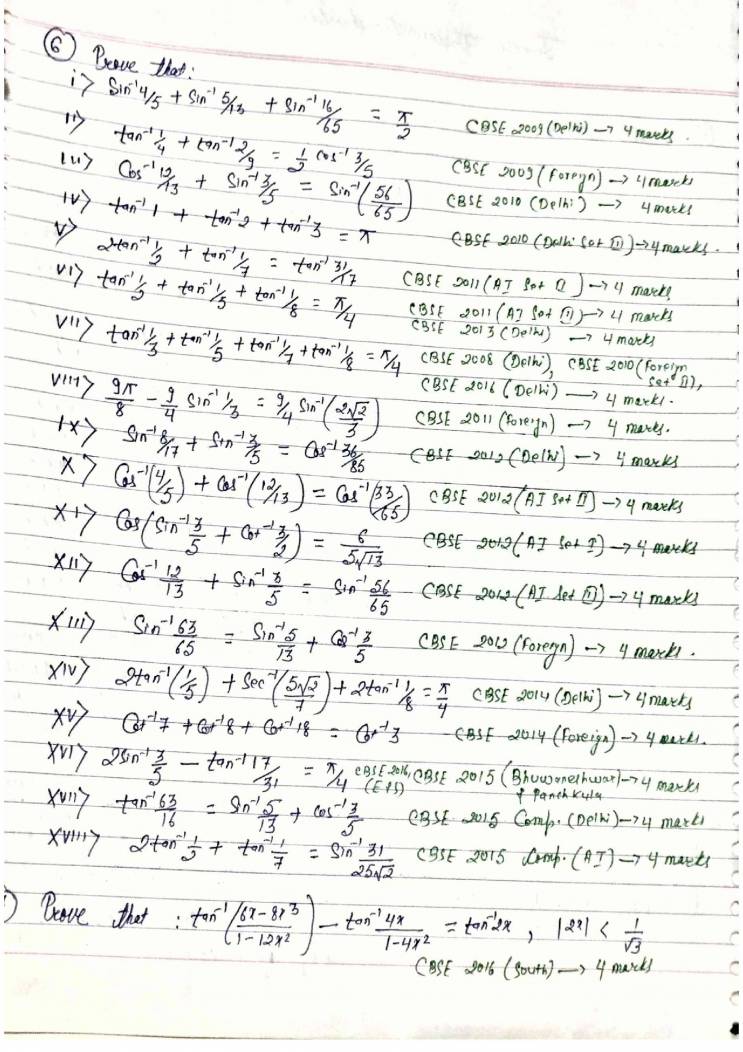 6 Prove that:
i> Sin⁻¹4/5 + Sin⁻¹5/13 + Sin⁻¹16/65 = π/2 CBSE 2009 (Delhi) → 4 marks.
ii> tan⁻¹1/4 + tan⁻¹2/9 = 1/2 cos⁻¹3/5 CBSE 2009 (Foreyn) → 4 marks
iii> Cos⁻¹12/13 + Sin⁻¹3/5 = Sin⁻¹(56/65) CBSE 2010 (Delhi) → 4 marks
iv> tan⁻¹1 + tan⁻¹2 + tan⁻¹3 = π CBSE 2010 (Delhi Set III) → 4 marks.
v> 2tan⁻¹1/2 + tan⁻¹1/7 = tan⁻¹31/17 CBSE 2011 (AI Set II) → 4 marks
vi> tan⁻¹1/2 + tan⁻¹1/5 + tan⁻¹1/8 = π/4 CBSE 2011 (AI Set III) → 4 marks
CBSE 2013 (Delhi) → 4 marks
vii> tan⁻¹1/3 + tan⁻¹1/5 + tan⁻¹1/7 + tan⁻¹1/8 = π/4 CBSE 2008 (Delhi), CBSE 2010 (Foreyn Set II),
CBSE 2016 (Delhi) → 4 marks.
viii> 9π/8 - 9/4 Sin⁻¹1/3 = 9/4 Sin⁻¹(2√2/3) CBSE 2011 (Foreyn) → 4 marks.
ix> Sin⁻¹8/17 + Sin⁻¹3/5 = Cos⁻¹36/85 CBSE 2012 (Delhi) → 4 marks
x> Cos⁻¹(4/5) + Cos⁻¹(12/13) = Cos⁻¹(33/65) CBSE 2012 (AI Set II) → 4 marks
xi> Cos(Sin⁻¹3/5 + Cot⁻¹3/2) = 6/5√13 CBSE 2012 (AI Set I) → 4 marks
xii> Cos⁻¹12/13 + Sin⁻¹3/5 = Sin⁻¹56/65 CBSE 2012 (AI Set III) → 4 marks
xiii> Sin⁻¹63/65 = Sin⁻¹5/13 + Cos⁻¹3/5 CBSE 2012 (Foreyn) → 4 marks.
xiv> 2tan⁻¹(1/5) + Sec⁻¹(5√2/7) + 2tan⁻¹1/8 = π/4 CBSE 2014 (Delhi) → 4 marks
xv> Cot⁻¹7 + Cot⁻¹8 + Cot⁻¹18 = Cot⁻¹3 CBSE 2014 (Foreign) → 4 marks.
xvi> 2Sin⁻¹3/5 - tan⁻¹17/31 = π/4 CBSE 2016, CBSE 2015 (Bhuwaneshwar) → 4 marks
& Panchkula
xvii> tan⁻¹63/16 = Sin⁻¹5/13 + cos⁻¹3/5 CBSE 2015 Comp. (Delhi) → 4 marks
xviii> 2tan⁻¹1/2 + tan⁻¹1/7 = Sin⁻¹31/25√2 CBSE 2015 Comp. (AI) → 4 marks
Prove that : tan⁻¹(6x-8x³/1-12x²) - tan⁻¹4x/1-4x² = tan⁻¹2x, |2x| < 1/√3
CBSE 2016 (South) → 4 marks